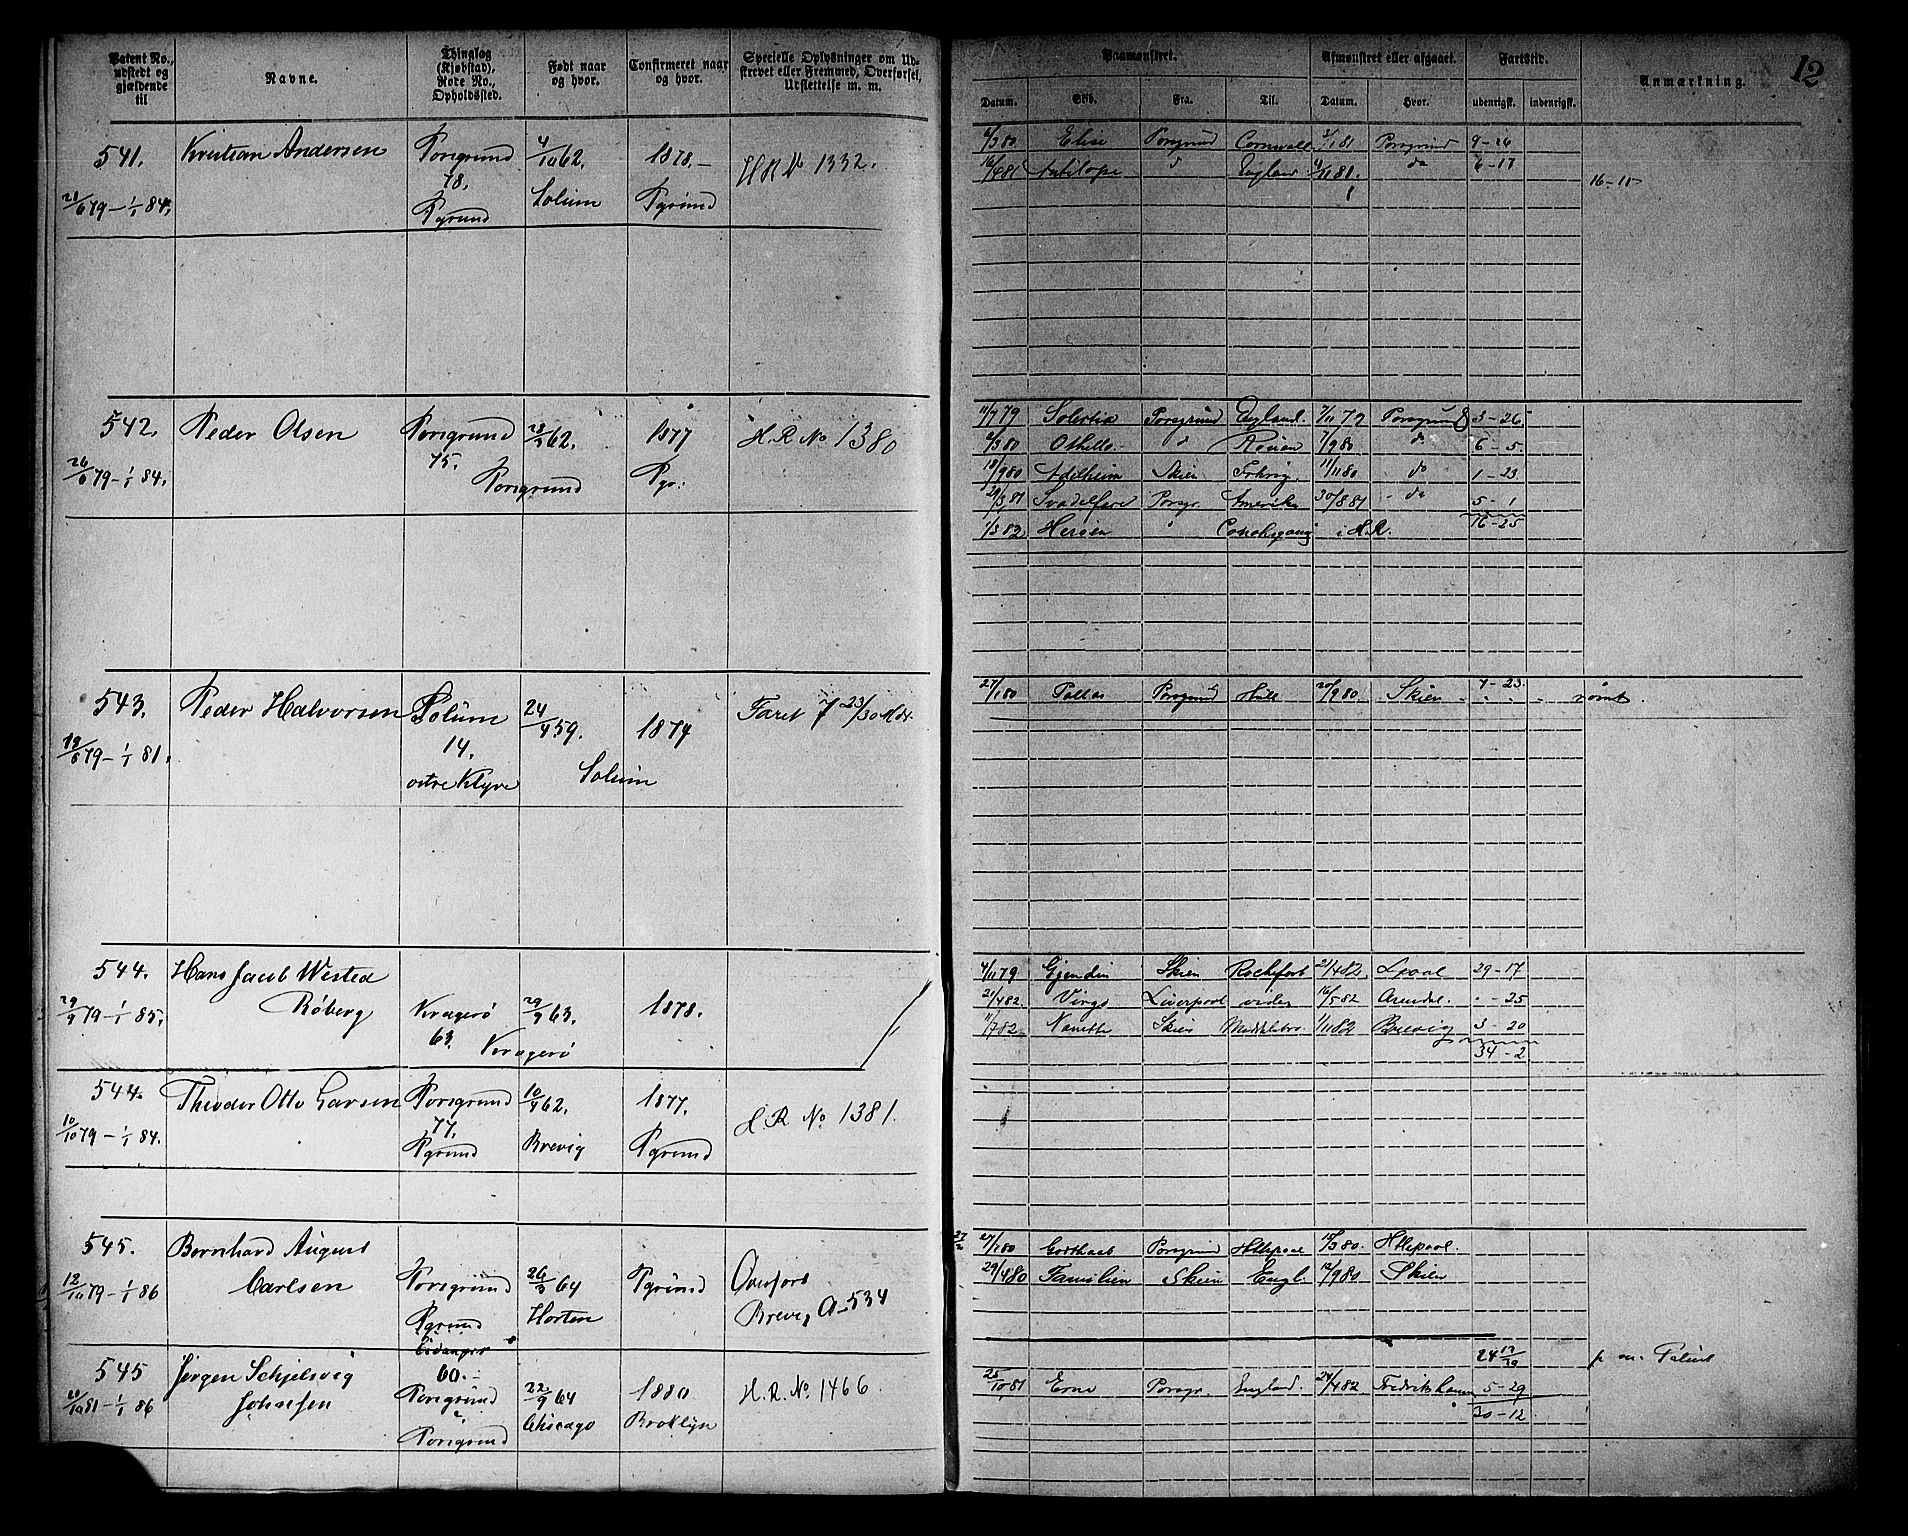 Patent No., udstedt og gjældende til
Navne.
Thinglag (Kjøbstad), Rote No., Opholdssted.
Født naar og hvor.
Confirmeret naar og hvor.
Specielle Oplysninger om Udskrevet eller Fremmed, Overførsel, Udslettelse m. m.
Paamønstret.
Afmønstret eller afgaaet.
Fartstid.
Anmærkning.
12
Datum. Skib. Fra. Til. Datum. Hvor. udenrigsk. indenrigsk.
541. Kristian Andersen Porsgrund 4/10 62. 1878.- H R No 1332.
78.
21/6 79 - 1/1 84. Pgrund Solum Pgrund
6/3 80 Elise Porsgrund Cornwall 3/1 81 Porsgrund 9-26
16/4 81 Antilope d England 4/11 81. do 6-17
542. Peder Olsen Porsgrund 1877 H. R No 1380
75.
26/6 79 - 1/1 84. Porsgrund Pgr.
11/7 79 Porsgrund England. 7/11 79 Porsgrund 3-26
Othello d Rouen 7/9 80 do 6-5.
18/9 80 Adelheim Skien 11/11 80 do 1-23
29/3 81 Svadelfare Porsgr. Amerika 30/8 81 do 5-1
16-25
1/3 82 i H.R.
543. Peder Halvorsen Solum 24/4 59. 1874 Faret 7 23/30 Mdr.
14.
19/6 79 - 1/1 81. østre Klyve Solum
27/1 80 Pallas Porsgrund Hull 20/9 80 Skien 7-23. rømt.
544. Hans Jacob Wested
Røberg Kragerø 29/9 63. 1878.
29/9 79 - 1/1 85. 63. Kragerø
4/11 79 Skien Rochefort 21/4 82 Lpool 29-17
21/4 82. Virgo Liverpool videre 16/5 82 Arendal " - 25
11/7 82 Nanette Skien 1/11 82 Brevig 3-20
34-2
544. Theodor Otto Larsen Porsgrund 10/4 62. 1877. H. R No. 1381.
77.
10/10 79 - 1/1 84. Pgrund Brevig Pgrund
545. Bernhard August
Carlsen Porsgrund 26/3 64 Pgrund Overført
12/10 79 - 1/1 86 Pgrund Horten Brevig A-534
27/1 80 Godthaab Porsgrund Htlepool 18/3 80. Htlepool.
29/4 80 Familien Skien Engl. 12/9 80 Skien
Eidanger
545 Jørgen Schjelsvig 60.-
Johnsen Porsgrund 22/9 64 1880 H. R. No. 1466.
20/10 81 - 1/1 86 Porsgrund Chicago Broklyn
24 17/29
25/10 81 Erna Porsgr. England. 24/4 82 Fredrikshavn 5-29
30-12.